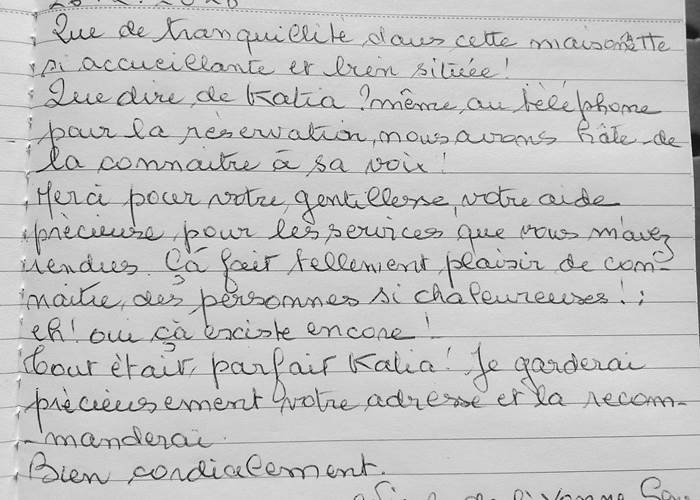 Que de tranquillité dans cette maisonètte
si accueillante et bien située!
Que dire de Katia? même au téléphone
pour la réservation, nous avons hâte de
la connaitre à sa voix!
Merci pour votre gentillesse, votre aide
prècieuse, pour les services que vous m'avez
rendues. Çà fait tellement plaisir de con-
naitre, des personnes si chaleureuses!;
eh! oui çà existe encore!
Tout ètait, parfait Katia! Je garderai
prècieusement votre adresse et la recom-
-manderai.
Bien cordialement.